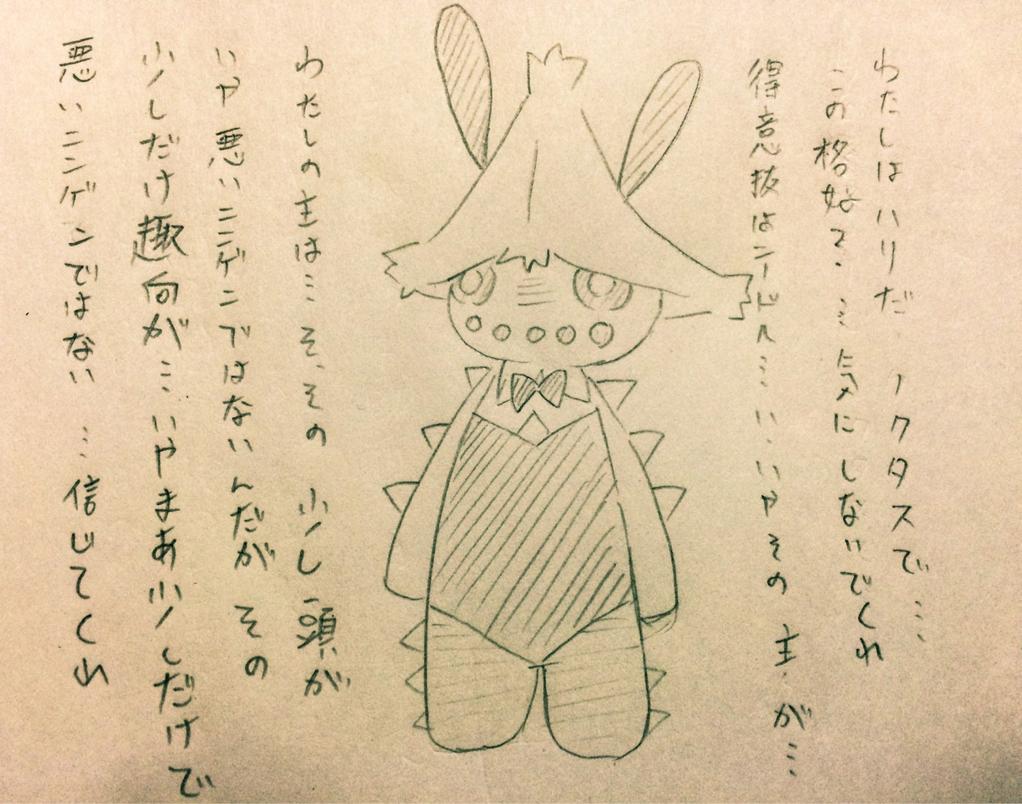 わたしはハリだ ノクタスで…
この格好？…気にしないでくれ
得意抜はニードル…い、いやその 主、が…
わたしの主は… そ、その 少し頭が
いや悪いニンゲンではないんだが その
少しだけ趣向が…いやまあ少しだけで
悪いニンゲンではない …信じてくれ